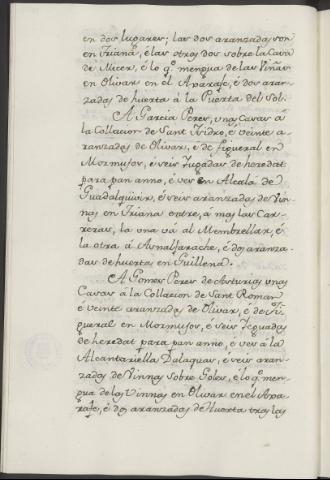 en dos lugares; las dos aranzadas son
en Iriana, é las otras dos sobre la Cava
de Micer, é lo q.e mengua de las Viñas
en Olivar en el Axarafe, é dos aran-
zadas de huerta á la Puerta del Sol.
A Garcia Perez, unas Casas á
la Collacion de Sant Isidro, é veinte a-
ranzadas de Olivar, é de figueral en
Mormujos, é seis Yugadas de heredat
para pan anno, é vez en Alcalá de
Guadalquivir, é seis aranzadas de Vin-
nas en Triana entre amas las Car-
reras, la una vá al Membrellar, é
la otra á Aznalfarache, é dos aranza-
das de huertas en Guillena.
A Gomez Perez de Asturias unas
Casas á la Collacion de Sant Roman
é veinte aranzadas de Olivar, é de Fi-
gueral en Mormujos, é seis Yeguadas
de heredat para pan anno, é vez á la
Alcantariella Dalaquas, é seis aran-
zadas de Vinnas sobre Goles, é lo q.e men-
gua de las Vinnas en Olivar en el Axa-
rafe, é dos aranzadas de Huerta tras las